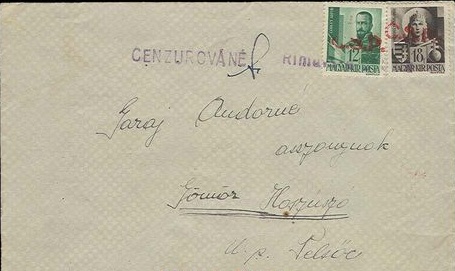 CENZUROVANÉ
12
18
MAGYAR KIR. POSTA
MAGYAR KIR. POSTA
Garaj Andorné
asszonynak
Gömör Hosszúszó
u. p. Pelsőc